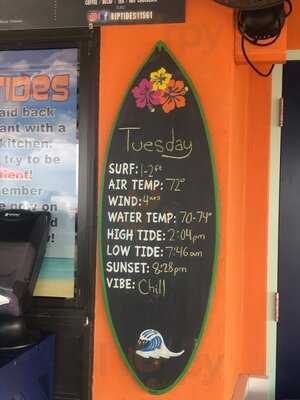 COFFEE / DECAF / TEA / HOT CHOCOLATE
RIPTIDES11561
TIDES
laid back
ant with a
kitchen.
try to be
ient!
ember
Tuesday
SURF: 1-2ft
AIR TEMP: 72°
WIND: 4
WATER TEMP: 70-74°
HIGH TIDE: 2:04pm
LOW TIDE: 7:46am
SUNSET: 8:28pm
VIBE: Chill